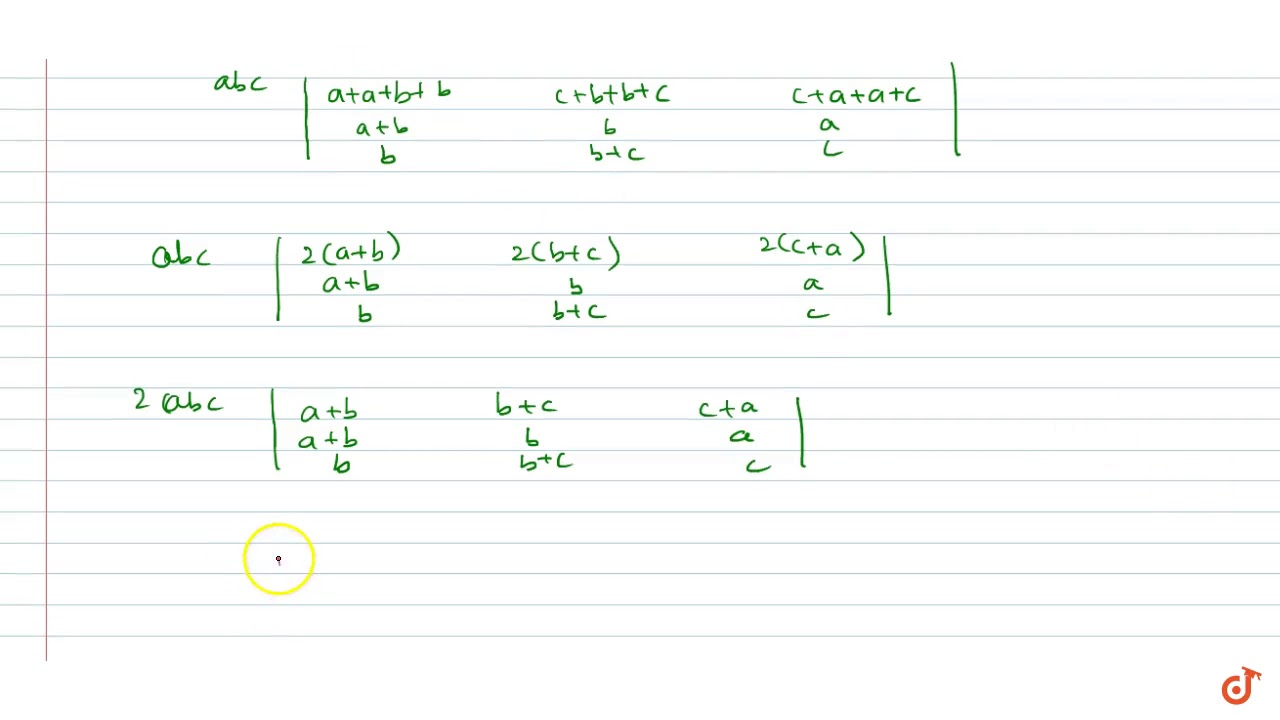 abc | a+a+b+b c+b+b+c c+a+a+c |
a+b b a
b b+c c
abc | 2(a+b) 2(b+c) 2(c+a) |
a+b b a
b b+c c
2 abc | a+b b+c c+a |
a+b b a
b b+c c